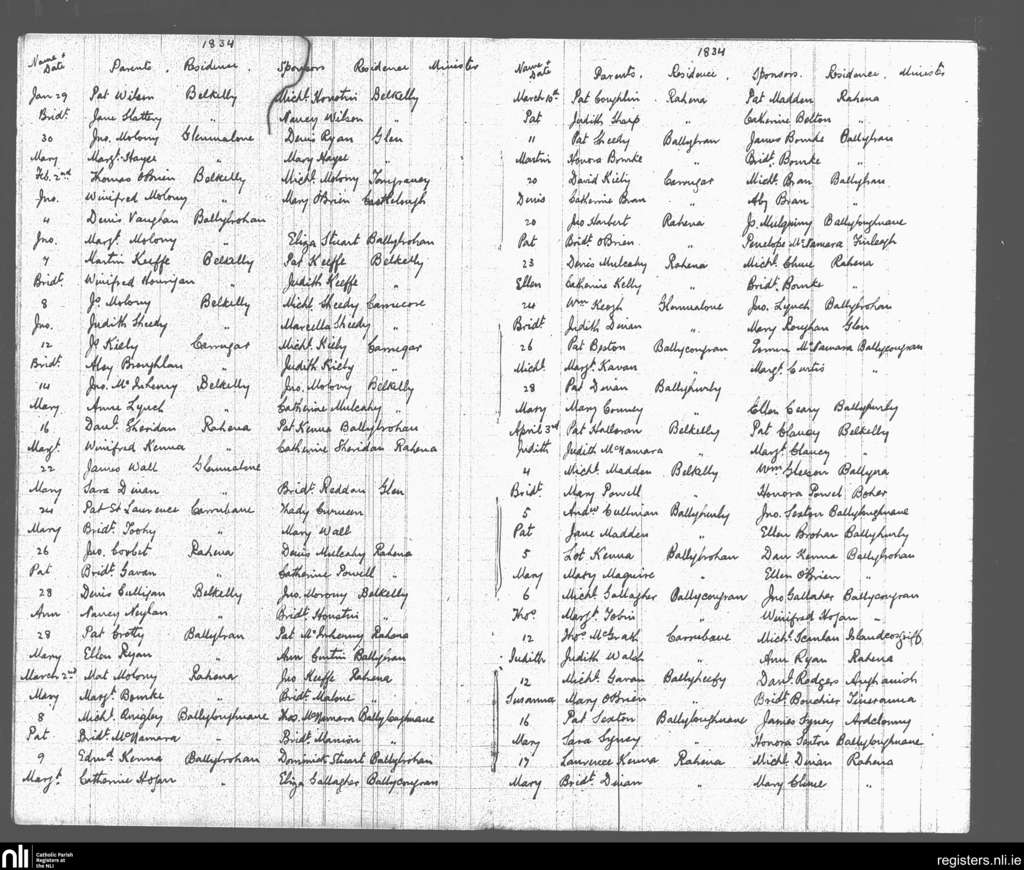 1834
Name & Date Parents. Residence. Sponsors Residence Minister
Jan 29 Pat Wilson Belkelly Michl. Honatin Belkelly
Bridt. Jane Slattery " Nancy Wilson "
30 Jno. Molony Glenmalone Denis Ryan Glen
Mary Margt. Hayes " Mary Hayes "
Feb. 2nd Thomas O'Brien Belkelly Michl. Molony Tomgraney
Jno. Winifred Molony " Mary O'Brien
4 Denis Vaughan Ballybrohan
Jno. Margt. Molony " Eliza Stuart Ballybrohan
7 Martin Keeffe Belkelly Pat Keeffe Belkelly
Bridt. Winifred Hourigan " Judith Keeffe "
8 Js. Molony Belkelly Michl. Sheedy Carrucore
Jno. Judith Sheedy " Marcella Sheedy "
12 Js Kiely Carrugar Michl. Kiely Carrugar
Bridt. Aby Broughlan " Judith Kiely "
14 Jno. McInherny Belkelly Jno. Molony Belkelly
Mary Anne Lynch " Catherine Mulcahy "
16 Danl. Sheridan Rahena Pat Kenna Ballybrohan
Margt. Winifred Kenna " Catherine Sheridan Rahena
22 James Wall Glenmalone
Mary Sara Dinan " Bridt. Reddan Glen
24 Pat St Laurence Carrubane Thady Curneen
Mary Bridt. Toohy " Mary Wall
26 Jno. Corbet Rahena Denis Mulcahy Rahena
Pat Bridt. Gavan " Catherine Powell "
28 Denis Culligan Belkelly Jno. Morony Belkelly
Ann Nancy Neylan " Bridt. Honatin "
28 Pat Crotty Ballybran Pat McInherny Rahena
Mary Ellen Ryan " Ann Curtin Ballybran
March 2nd Mat Molony Rahena Jno Keeffe Rahena
Mary Margt. Bourke " Bridt. Malone "
8 Michl. Quigley Ballyloughnane Thos. McNamara Ballyloughnane
Pat Bridt. McNamara " Bridt. Manion "
9 Edmd. Kenna Ballybrohan Dominick Stuart Ballybrohan
Margt. Catherine Hogan " Eliza Gallagher Ballycongran
1834
Name & Date Parents. Residence. Sponsors. Residence. Minister
March 10th Pat Coughlin Rahena Pat Madden Rahena
Pat Judith Sharp " Catherine Bolton "
11 Pat Sheehy Ballybran James Bourke Ballybran
Martin Honora Bourke " Bridt. Bourke "
20 David Kiely Carrugar Michl. Bran Ballybran
Denis Catherine Bran " Aby Bran "
20 Jno Harbert Rahena Js. Mulqueny Ballyloughnane
Pat Bridt O'Brien " Penelope McNamara Finleagh
23 Denis Mulcahy Rahena Michl Clune Rahena
Ellen Catherine Kelly " Bridt. Bourke "
24 Wm Keogh Glenmalone Jno. Lynch Ballybrohan
Bridt Judith Dinan " Mary Roughan Glen
26 Pat Boston Ballycongran McNamara Ballycongran
Michl. Margt. Kavan " Margt. Curtis "
28 Pat Dinan Ballyhurly
Mary Mary Conney " Ellen Ceary Ballyhurly
April 3rd Pat Halloran Belkelly Pat Clancy Belkelly
Judith Judith McNamara " Margt. Clancy "
4 Michl. Madden Belkelly Wm Gleeson Ballyna
Bridt. Mary Powell " Honora Powel Boher
5 Andw Cullinan Ballyhurly Jno. Sexton Ballyloughnane
Pat Jane Madden " Ellen Brohan Ballyhurly
5 Lot Kenna Ballybrohan Dan Kenna Ballybrohan
Mary Mary Maguire " Ellen O'Brien "
6 Michl. Gallagher Ballycongran Jno Gallaher Ballycongran
Thos. Margt. Tobin " Winifred Hogan "
12 Thos. McGrath Carrubane Michl. Scanlan
Judith Judith Walsh " Ann Ryan Rahena
12 Michl. Gavan Ballyheefy Danl. Rodgers Aughanish
Susanna Mary O'Brien " Bridt. Bouchier Tineranna
16 Pat Sexton Ballyloughnane James Syney Ardclonny
Mary Sara Syney " Honora Sexton Ballyloughnane
17 Lawrence Kenna Rahena Michl. Dinan Rahena
Mary Bridt. Dinan " Mary Clune "
nli Catholic Parish Registers at the NLI
registers.nli.ie